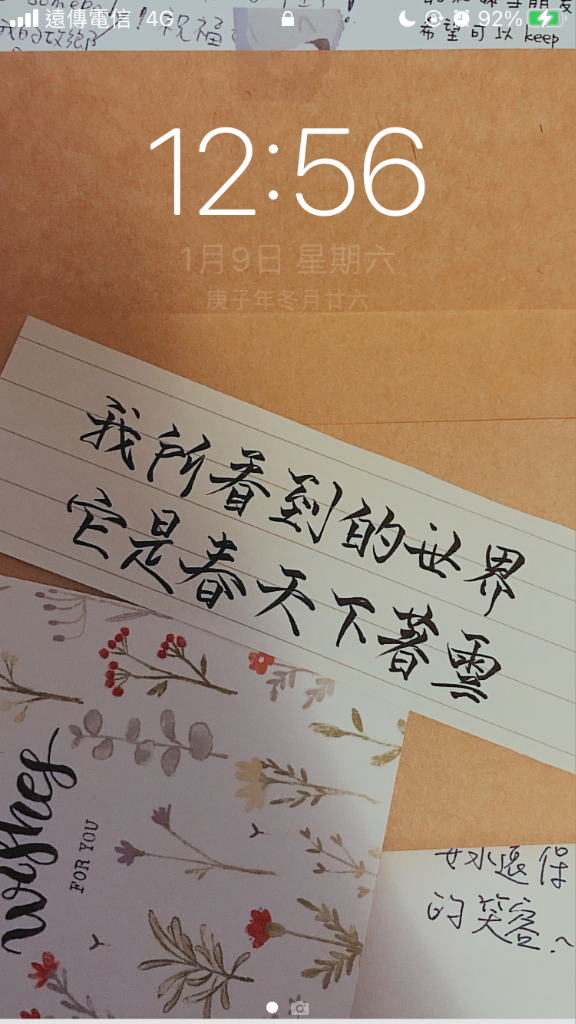 遠傳電信 4G 92%
祝福
希望可以 keep
12:56
1月9日 星期六
庚子年冬月廿六
我所看到的世界
它是春天下著雪
wishes
FOR YOU
的笑容